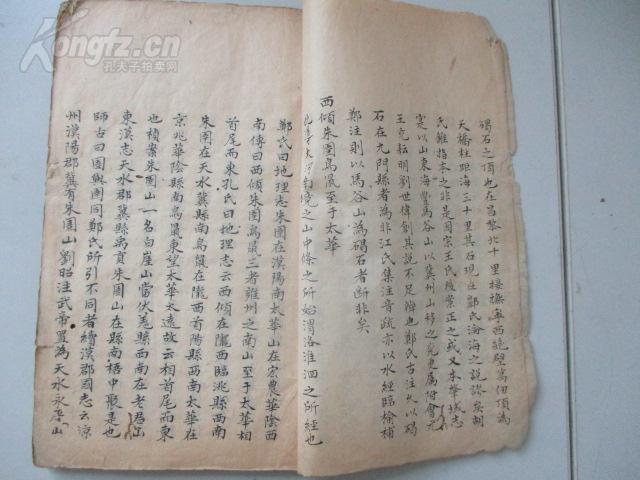 碣石之頂也在昌黎北十里
天橋柱距海三十里其石現在鄭氏瀹海之說誤矣胡
氏錐指本之非是閻宗王氏後案正之或又本肇域志
定以山東海豐馬谷山以冀州山移之兖更屬附會元
王充耘明劉世偉創其說不足辨也鄭氏古注久以碣
石在九門縣者為非江氏集注音疏亦以水經臨榆補
鄭注則以馬谷山為碣石者斷非矣
西傾朱圉鳥鼠至于太華
南境之山中條之所始渭洛淮泗之所經也
鄭氏曰地理志朱圉在漢陽南太華山在宏農華陰西
南傳曰西傾朱圉鳥鼠三者雍州之南山至于太華相
首尾而東孔氏曰地理志云西傾在隴西臨洮縣西南
朱圉在天水冀縣南鳥鼠在隴西首陽縣西南太華在
京兆華陰縣南鳥鼠東望太華太遠故云相首尾而東
也積案朱圉山一名白崖山當伏羌縣西南在老君山
東漢志天水郡冀縣禹貢朱圉山在縣南梧中聚是也
師古曰圉與圄同鄭氏所引不同者續漢郡國志云涼
州漢陽郡冀有朱圉山劉昭注武帝置為天水永平山
Kongfz.cn
孔夫子拍卖网